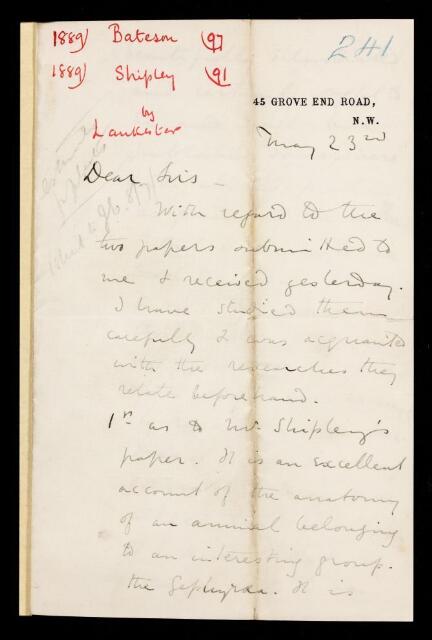 1889) Bateson (97
241
1889) Shipley (91
by
Lankester
45 GROVE END ROAD,
N.W.
May 23rd
Dear Sirs –
With regard to the
two papers submitted to
me & received yesterday.
I have studied them
carefully & was acquainted
with the researches they
relate beforehand.
1st as to Mr. Shipley's
paper. It is an excellent
account of the anatomy
of an animal belonging
to an interesting group.
the Gephyrea. It is